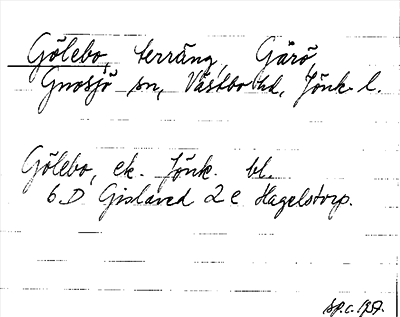 Gölebo, terräng, Gårö,
Gnosjö sn, Västbo hd, Jönk. l.
Gölebo, ek. Jönk. bl.
6 D Gislaved 2 e Hagelstorp.